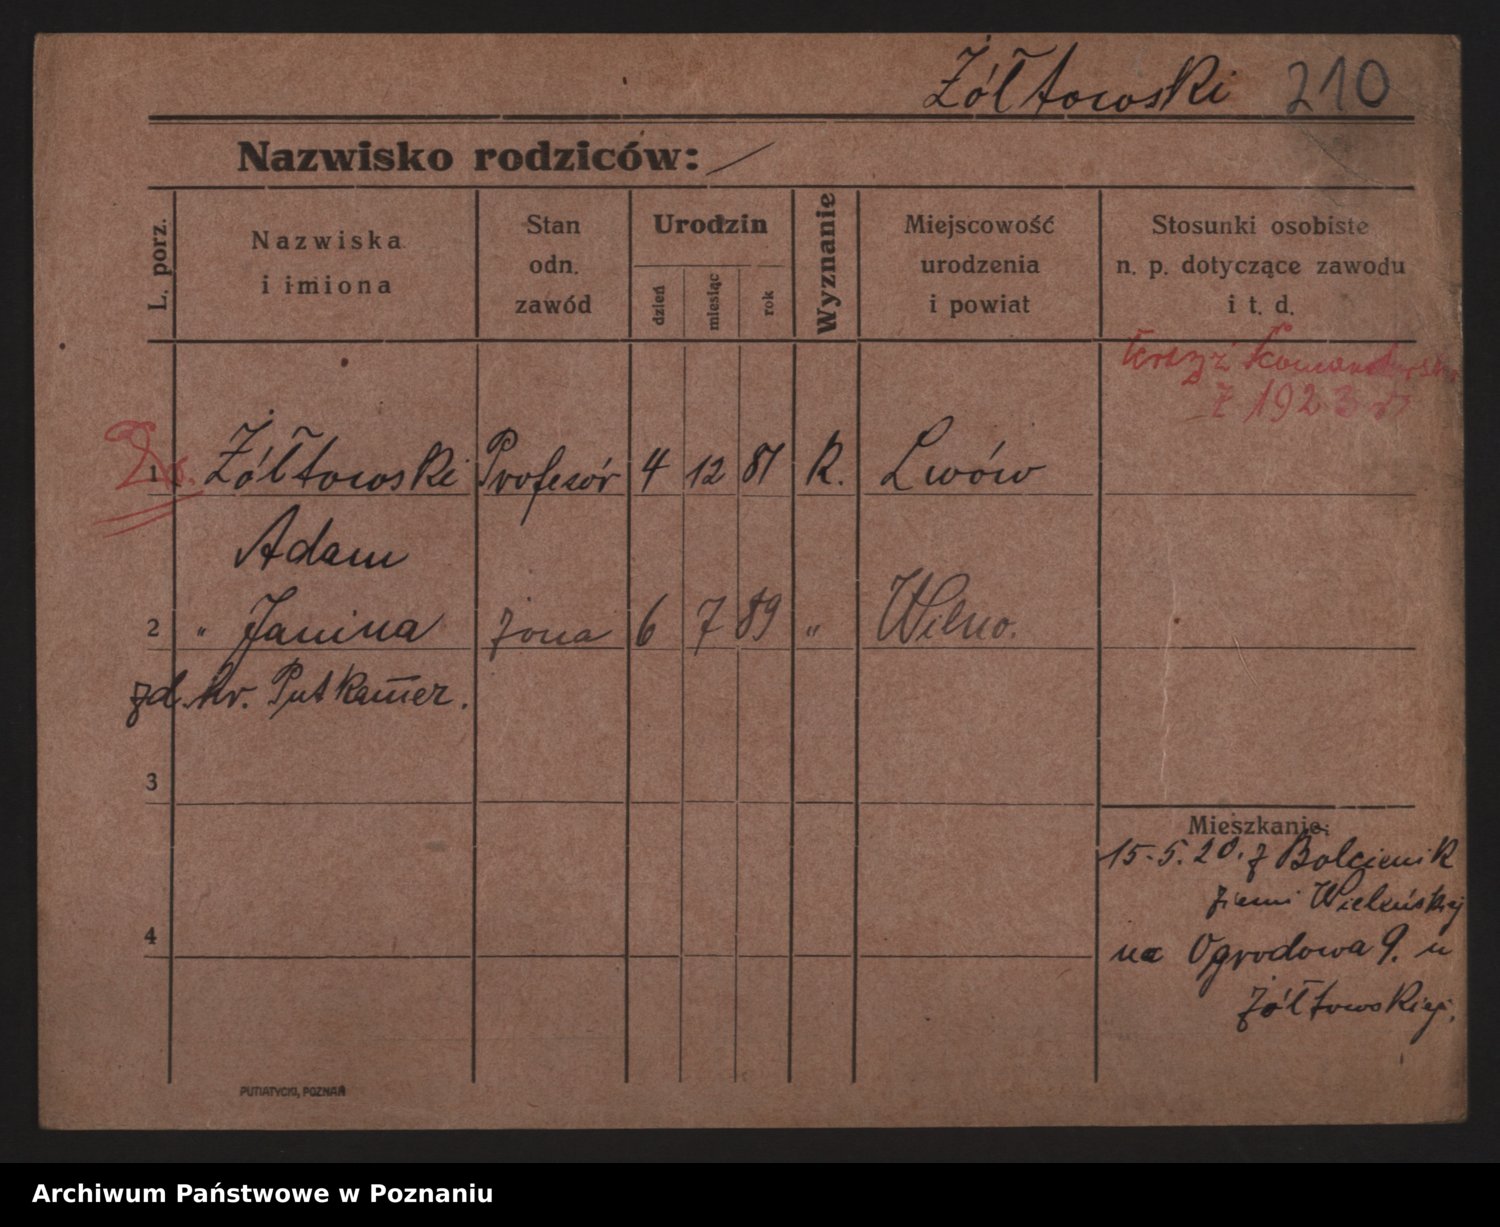 Żółtowski 210
Nazwisko rodziców:
L. porz.
Nazwiska
i imiona
Stan
odn.
zawód
Urodzin
dzień
miesiąc
rok
Wyznanie
Miejscowość
urodzenia
i powiat
Stosunki osobiste
n. p. dotyczące zawodu
i t. d.
Krzyż Komandorski
z 1923 r
1 Żółtowski Profesór 4 12 81 K. Lwów
Adam
2 " Janina żona 6 7 89 " Wilno.
zd. hr. Putkam̅er.
3
Mieszkanie:
15.5.20. z Bolcienik
ziemi Wileńskiej
4
na Ogrodowa 9. u
Żółtowskiej.
PUTIATYCKI, POZNAŃ
Archiwum Państwowe w Poznaniu